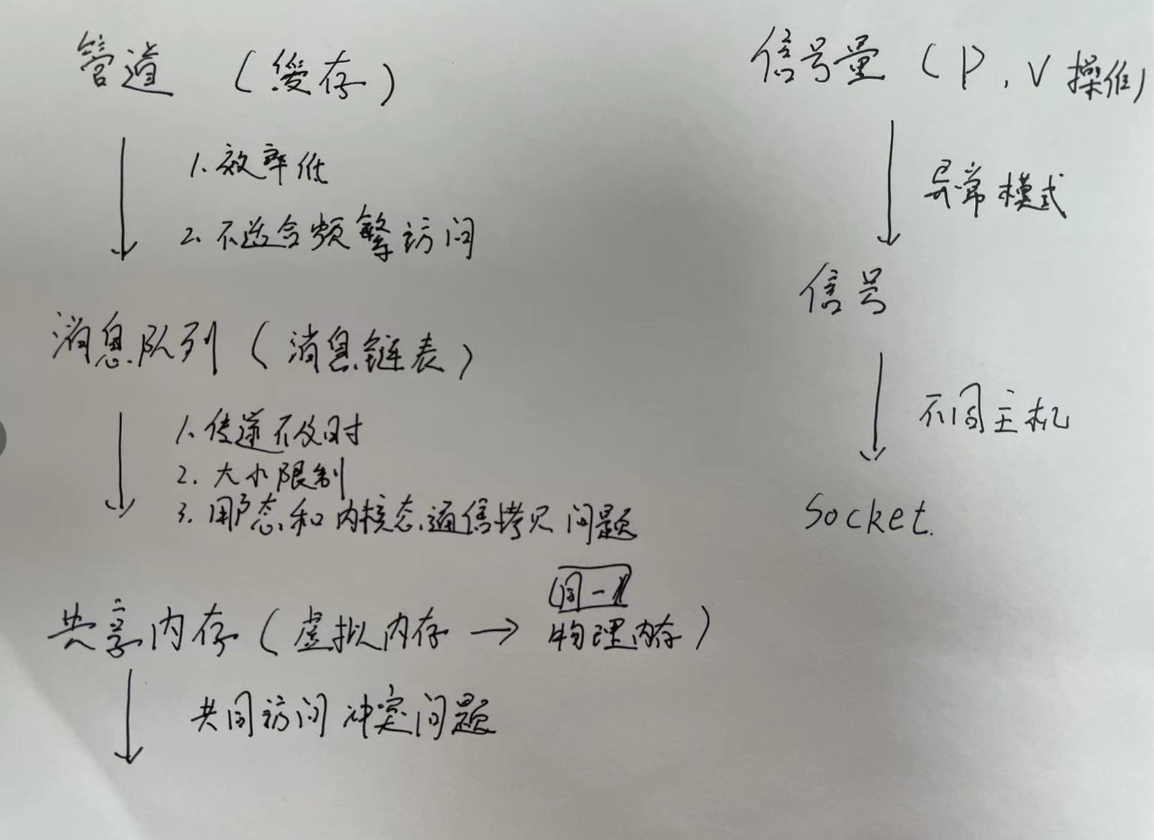 管道 (缓存)
1. 效率低
2. 不适合频繁访问
消息队列 (消息链表)
1. 传递不及时
2. 大小限制
3. 用户态和内核态通信拷贝问题
同一
共享内存 (虚拟内存 → 物理内存)
共同访问冲突问题
信号量 (P, V 操作)
异常模式
信号
不同主机
Socket.